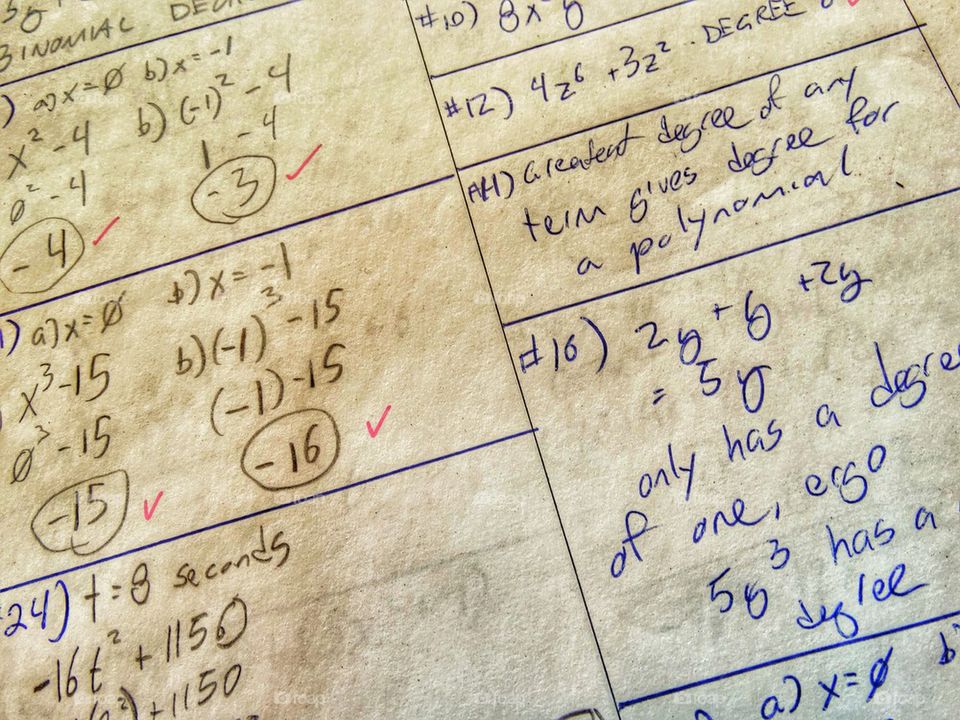 BINOMIAL
a) x=0 b) x=-1
x² - 4 b) (-1)² - 4
0² - 4 1 - 4
-4 -3
a) x=0 b) x = -1
x³ - 15 b) (-1)³ - 15
0³ - 15 (-1) - 15
-15 -16
24) t = 8 seconds
-16t² + 1150
+ 1150
#10) 8x y
#12) 4z⁶ + 3z² . DEGREE
Greatest degree of any
term gives degree for
a polynomial
#16) 2y + y + 2y
= 5y
only has a degree
of one, ergo
5y³ has a
degree
a) x=0 b)